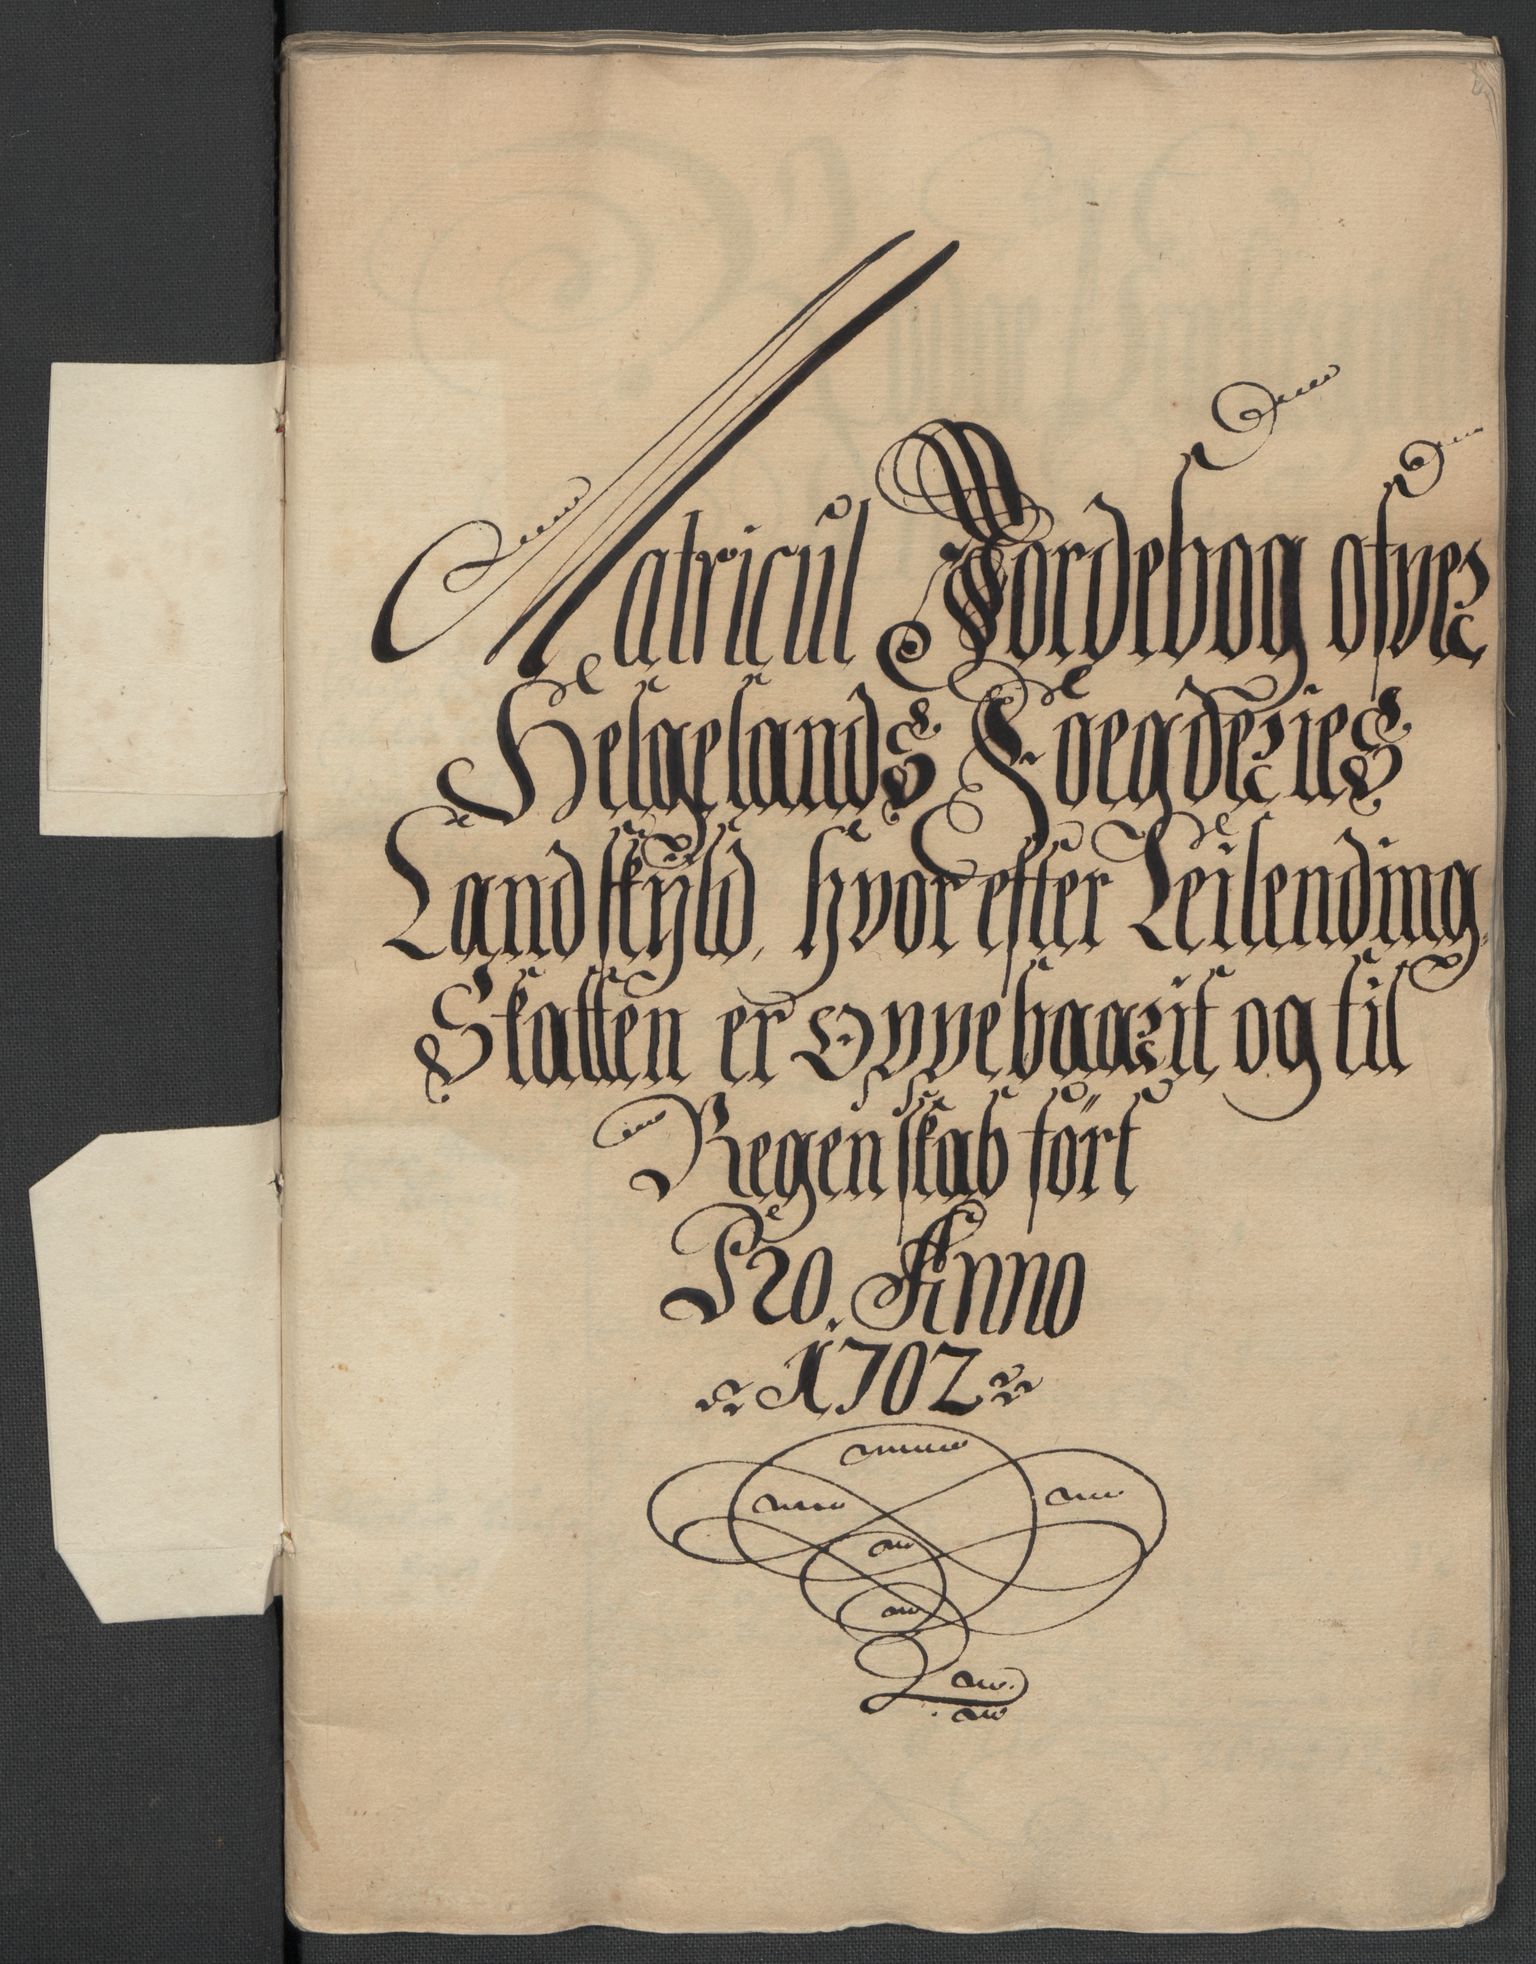 Matricul Jordebog ofver
Helgelands Foegderies
Landskyld, hvorefter Leilending
Skatten er Oppebaarit og til
Regenskab fört
Pro. Anno
1702